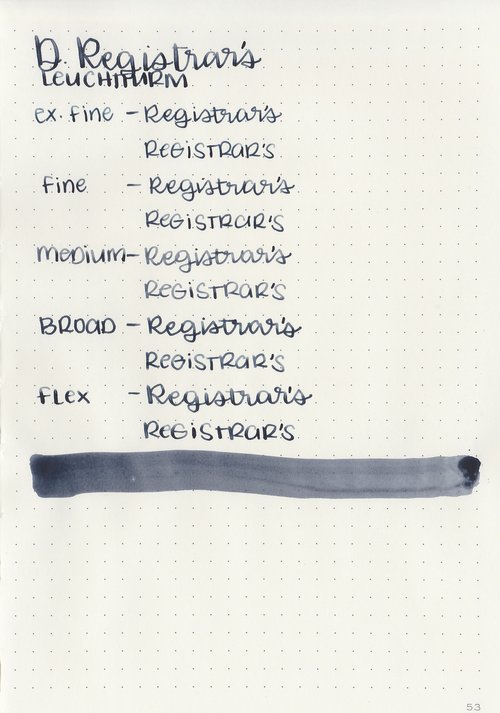 D. Registrar's
LEUCHTTURM
ex. fine - Registrar's
REGISTRAR'S
fine - Registrar's
REGISTRAR'S
MEDIUM - Registrar's
REGISTRAR'S
BROAD - Registrar's
REGISTRAR'S
FLEX - Registrar's
REGISTRAR'S
53